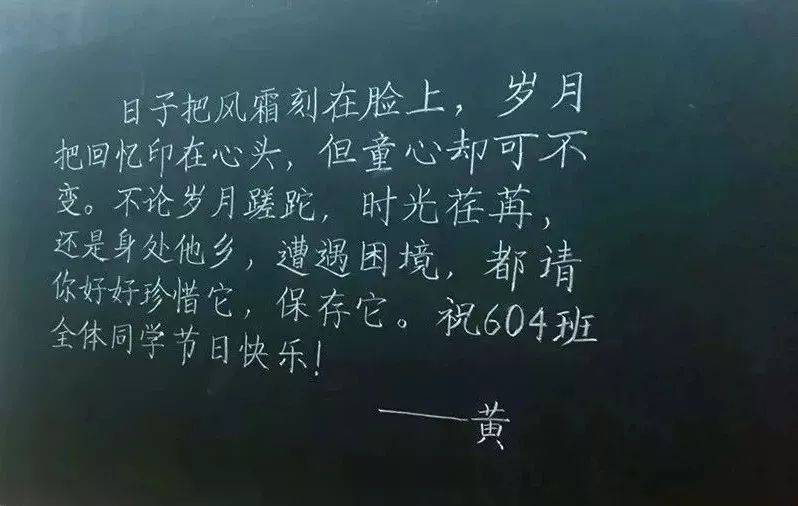 日子把风霜刻在脸上，岁月
把回忆印在心头，但童心却可不
变。不论岁月蹉跎，时光荏苒，
还是身处他乡，遭遇困境，都请
你好好珍惜它，保存它。祝604班
全体同学节日快乐！
——黄